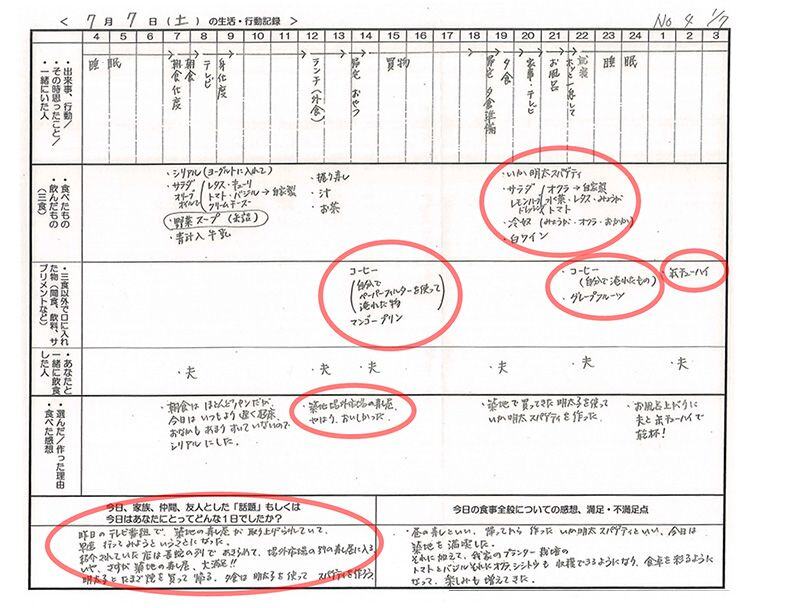 < 7月 7日 (土) の生活・行動記録 >
No 4 1/7
4 5 6 7 8 9 10 11 12 13 14 15 16 17 18 19 20 21 22 23 24 1 2 3
・出来事、行動/
その時思ったこと/
・一緒にいた人
睡 眠
朝食仕度
朝食
テレビ
身仕度
ランチ(外食)
帰宅 おやつ
買物
帰宅 夕食準備
夕食
家事・テレビ
お風呂
睡 眠
・食べたもの
飲んだもの
(三食)
・シリアル(ヨーグルトに入れて)
・サラダ
オリーブオイル
レタス・キューリ
トマト・バジル→自家製
クリームチーズ
・野菜スープ(缶詰)
・青汁入牛乳
・握り寿し
・汁
・お茶
・いか明太スパゲティ
・サラダ
レモンハーブドレッシング
オクラ→自家製
水菜・レタス・みょうが
トマト
・冷奴(みょうが・オクラ・おかか)
・白ワイン
・三食以外で口に入れ
た物(間食、飲料、サ
プリメントなど)
コーヒー
(自分で
ペーパーフィルターを使って
淹れた物)
マンゴープリン
・コーヒー
(自分で淹れたもの)
・グレープフルーツ
・缶チューハイ
・あなたと
一緒に飲食
した人
・夫 ・夫 ・夫 ・夫 ・夫 ・夫
・選んだ/作った理由
食べた感想
・朝食はほとんどパンだが、
今日はいつもより遅く起床、
おなかもあまりすいていないので
シリアルにした。
・築地場外市場の寿し屋、
やはり、おいしかった。
・築地で買ってきた明太子を使って
いか明太スパゲティを作った。
・お風呂上がりに
夫と缶チューハイで
乾杯!
今日、家族、仲間、友人とした「話題」もしくは
今日はあなたにとってどんな1日でしたか?
昨日のテレビ番組で、築地の寿し屋が取り上げられていて、
早速行ってみようということになった。
紹介されていた店は長蛇の列であきらめて、場外市場の別の寿し屋に入る
いや、さすが築地の寿し屋、大満足!!
明太子とたまご焼を買って帰る。夕食は明太子を使ってスパゲティを作ろう。
今日の食事全般についての感想、満足・不満足点
・昼の寿しといい、帰ってから作ったいか明太スパゲティといい、今日は
築地を満喫した。
それに加えて、我家のプランター栽培の
トマトとバジルそれにオクラ、シシトウも収穫できるようになり、食卓を彩るように
なって、楽しみも増えてきた。